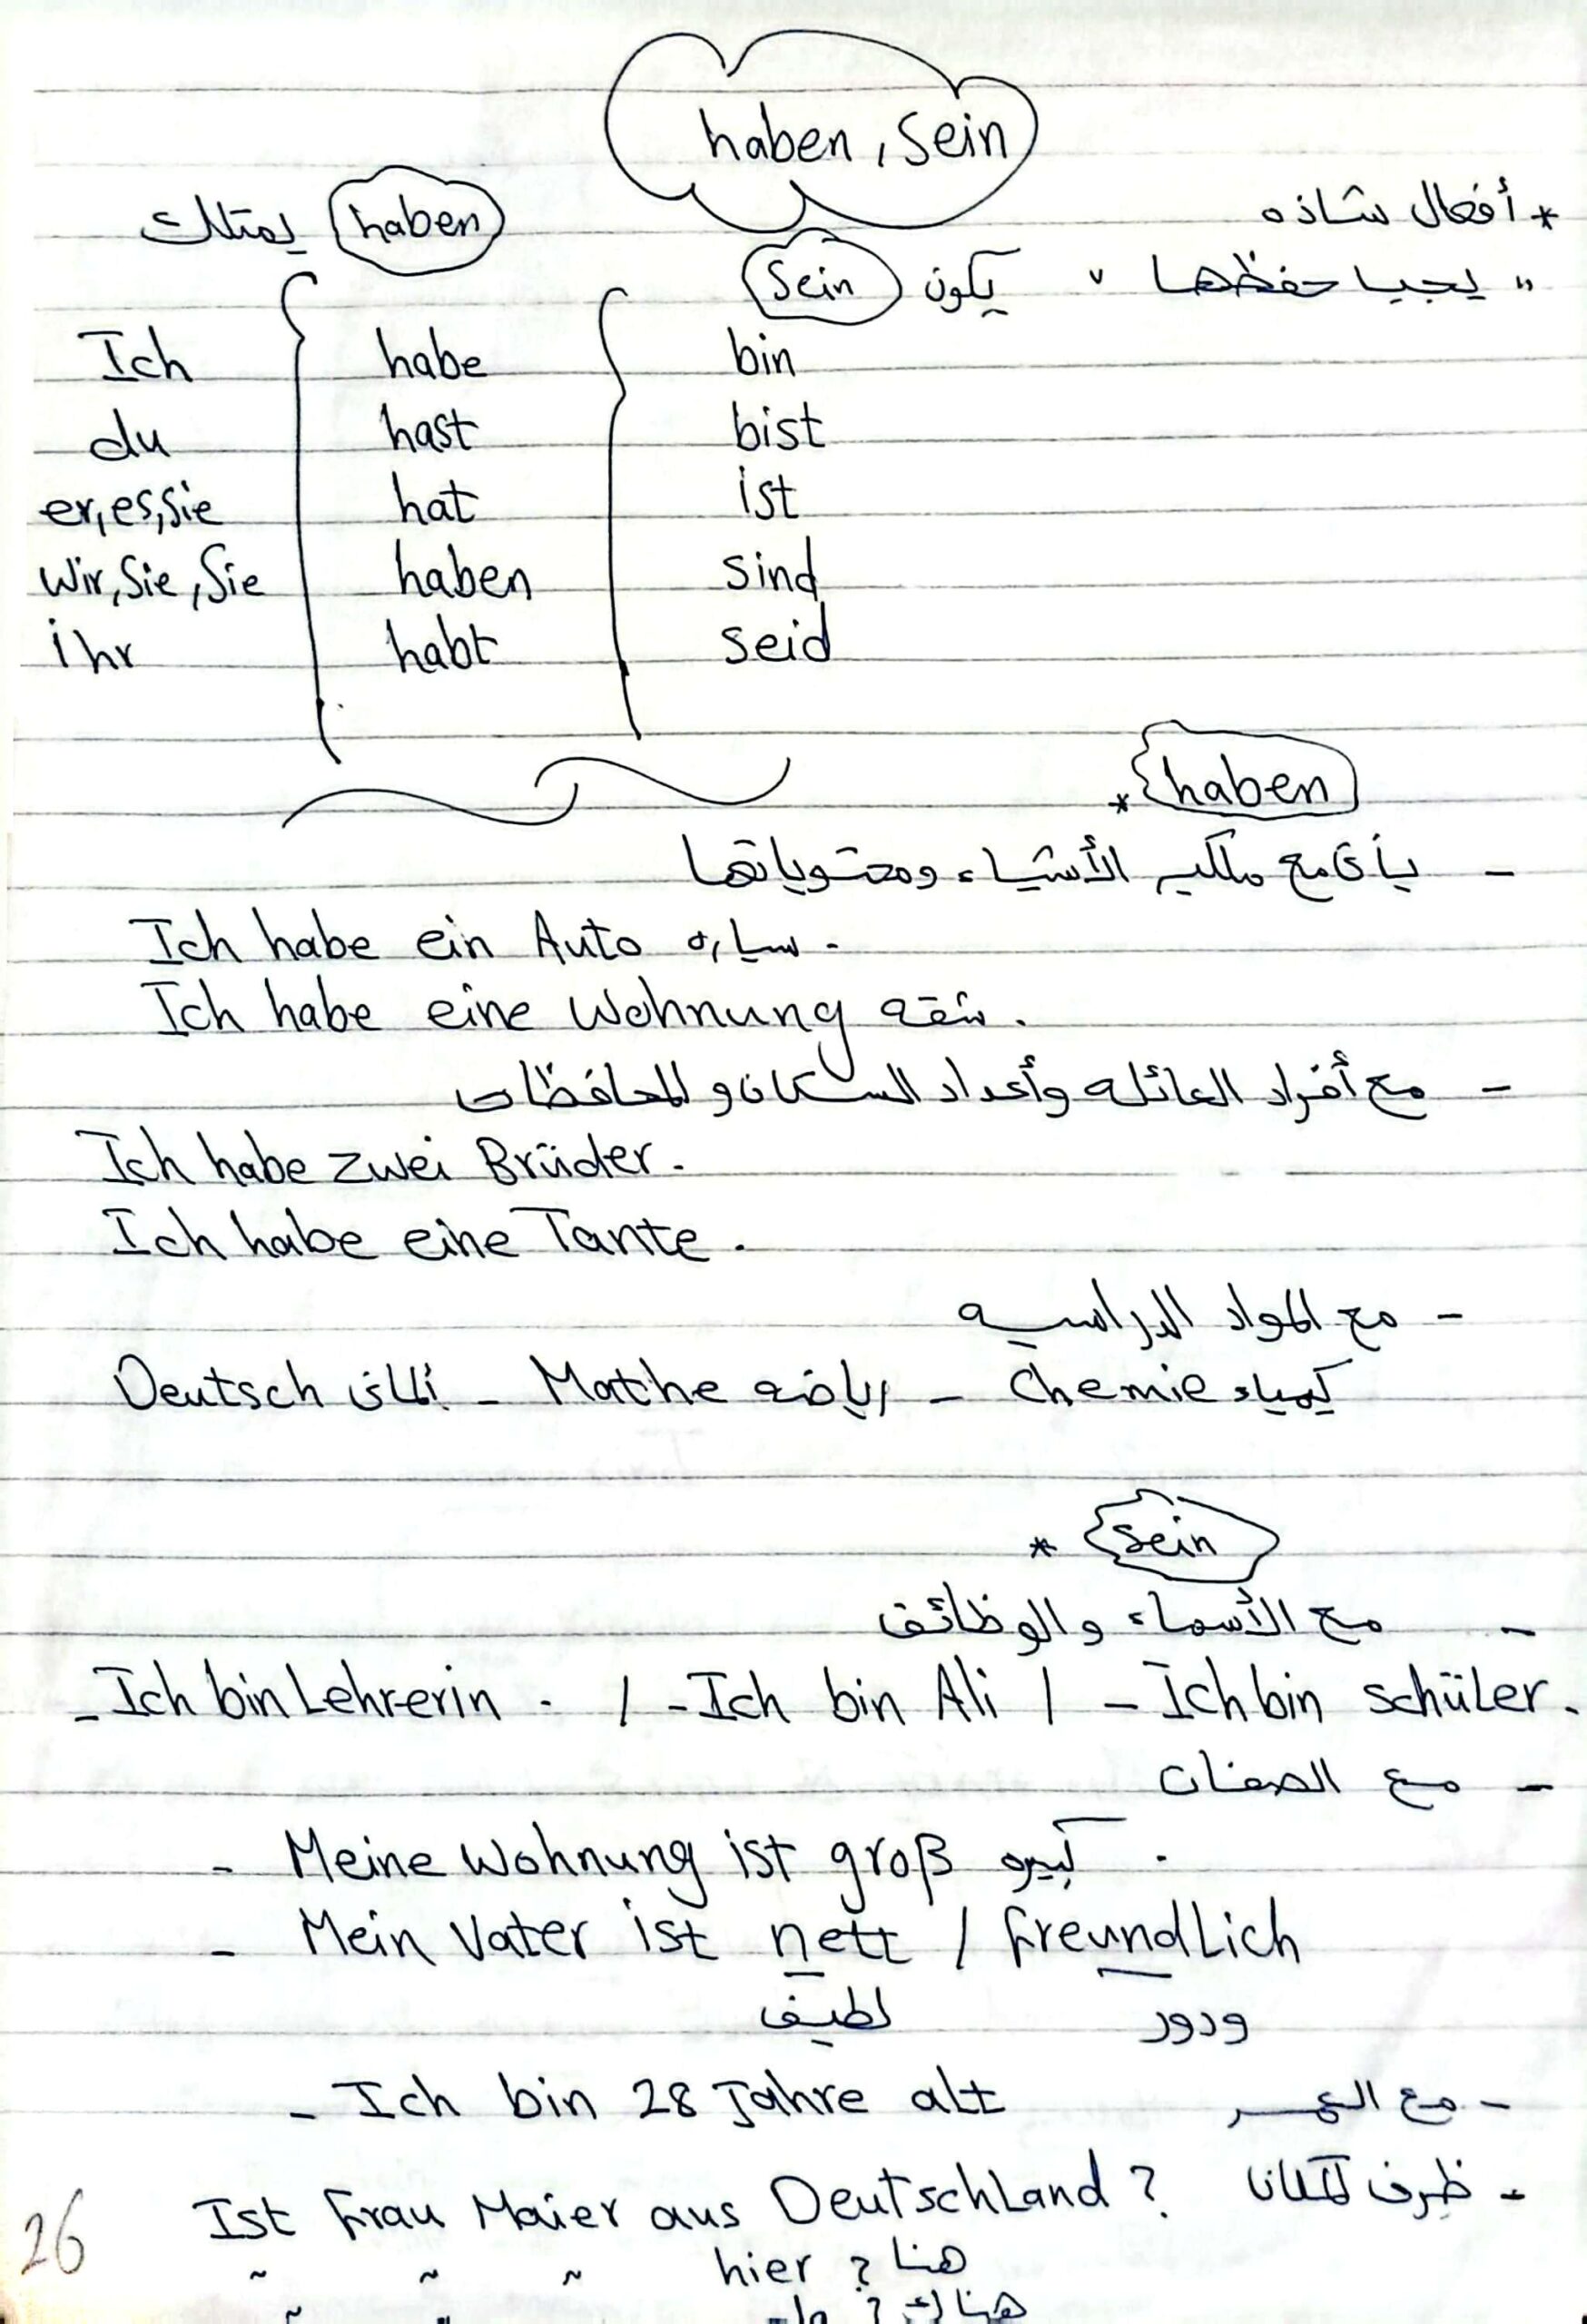 haben, sein
* أفعال شاذه
يمتلك haben
" يجب حفظها " يكون sein
Ich habe bin
du hast bist
er, es, sie hat ist
wir, Sie, Sie haben sind
ihr habt seid
* haben
- يأتى مع ملكيه الأشياء ومحتوياتها
Ich habe ein Auto سياره .
Ich habe eine Wohnung شقه .
- مع أفراد العائله وأعداد السكان والمحافظات
Ich habe zwei Brüder.
Ich habe eine Tante.
- مع المواد الدراسيه
Deutsch ألمانى - Mathe رياضه - Chemie كيمياء
* sein
- مع الأسماء والوظائف
- Ich bin Lehrerin . / - Ich bin Ali / - Ich bin schüler.
- مع الصفات
- Meine Wohnung ist groß كبيره .
- Mein Vater ist nett / freundlich
لطيف ودود
- Ich bin 28 Jahre alt - مع العمر
Ist Frau Maier aus Deutschland ? - ظرف المكان
~ ~ ~ hier ? هنا
هناك ?
26